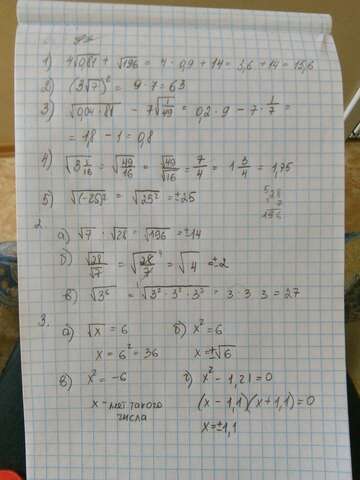 1) 4√0,81 + √196 = 4 · 0,9 + 14 = 3,6 + 14 = 15,6
2) (3√7)² = 9 · 7 = 63
3) √0,04 · 81 - 7√1/49 = 0,2 · 9 - 7 · 1/7 =
= 1,8 - 1 = 0,8
4) √3 1/16 = √49/16 = √49/√16 = 7/4 = 1 3/4 = 1,75
5) √(-25)² = √25² = ±25
28
7
196
2.
а) √7 · √28 = √196 = ±14
б) √28/√7 = √28/7 = √4 = ±2
в) √3⁶ = √3² · 3² · 3² = 3 · 3 · 3 = 27
3.
а) √x = 6
x = 6² = 36
б) x² = 6
x = ±√6
в) x² = -6
x - нет такого
числа
г) x² - 1,21 = 0
(x - 1,1)(x + 1,1) = 0
x = ±1,1